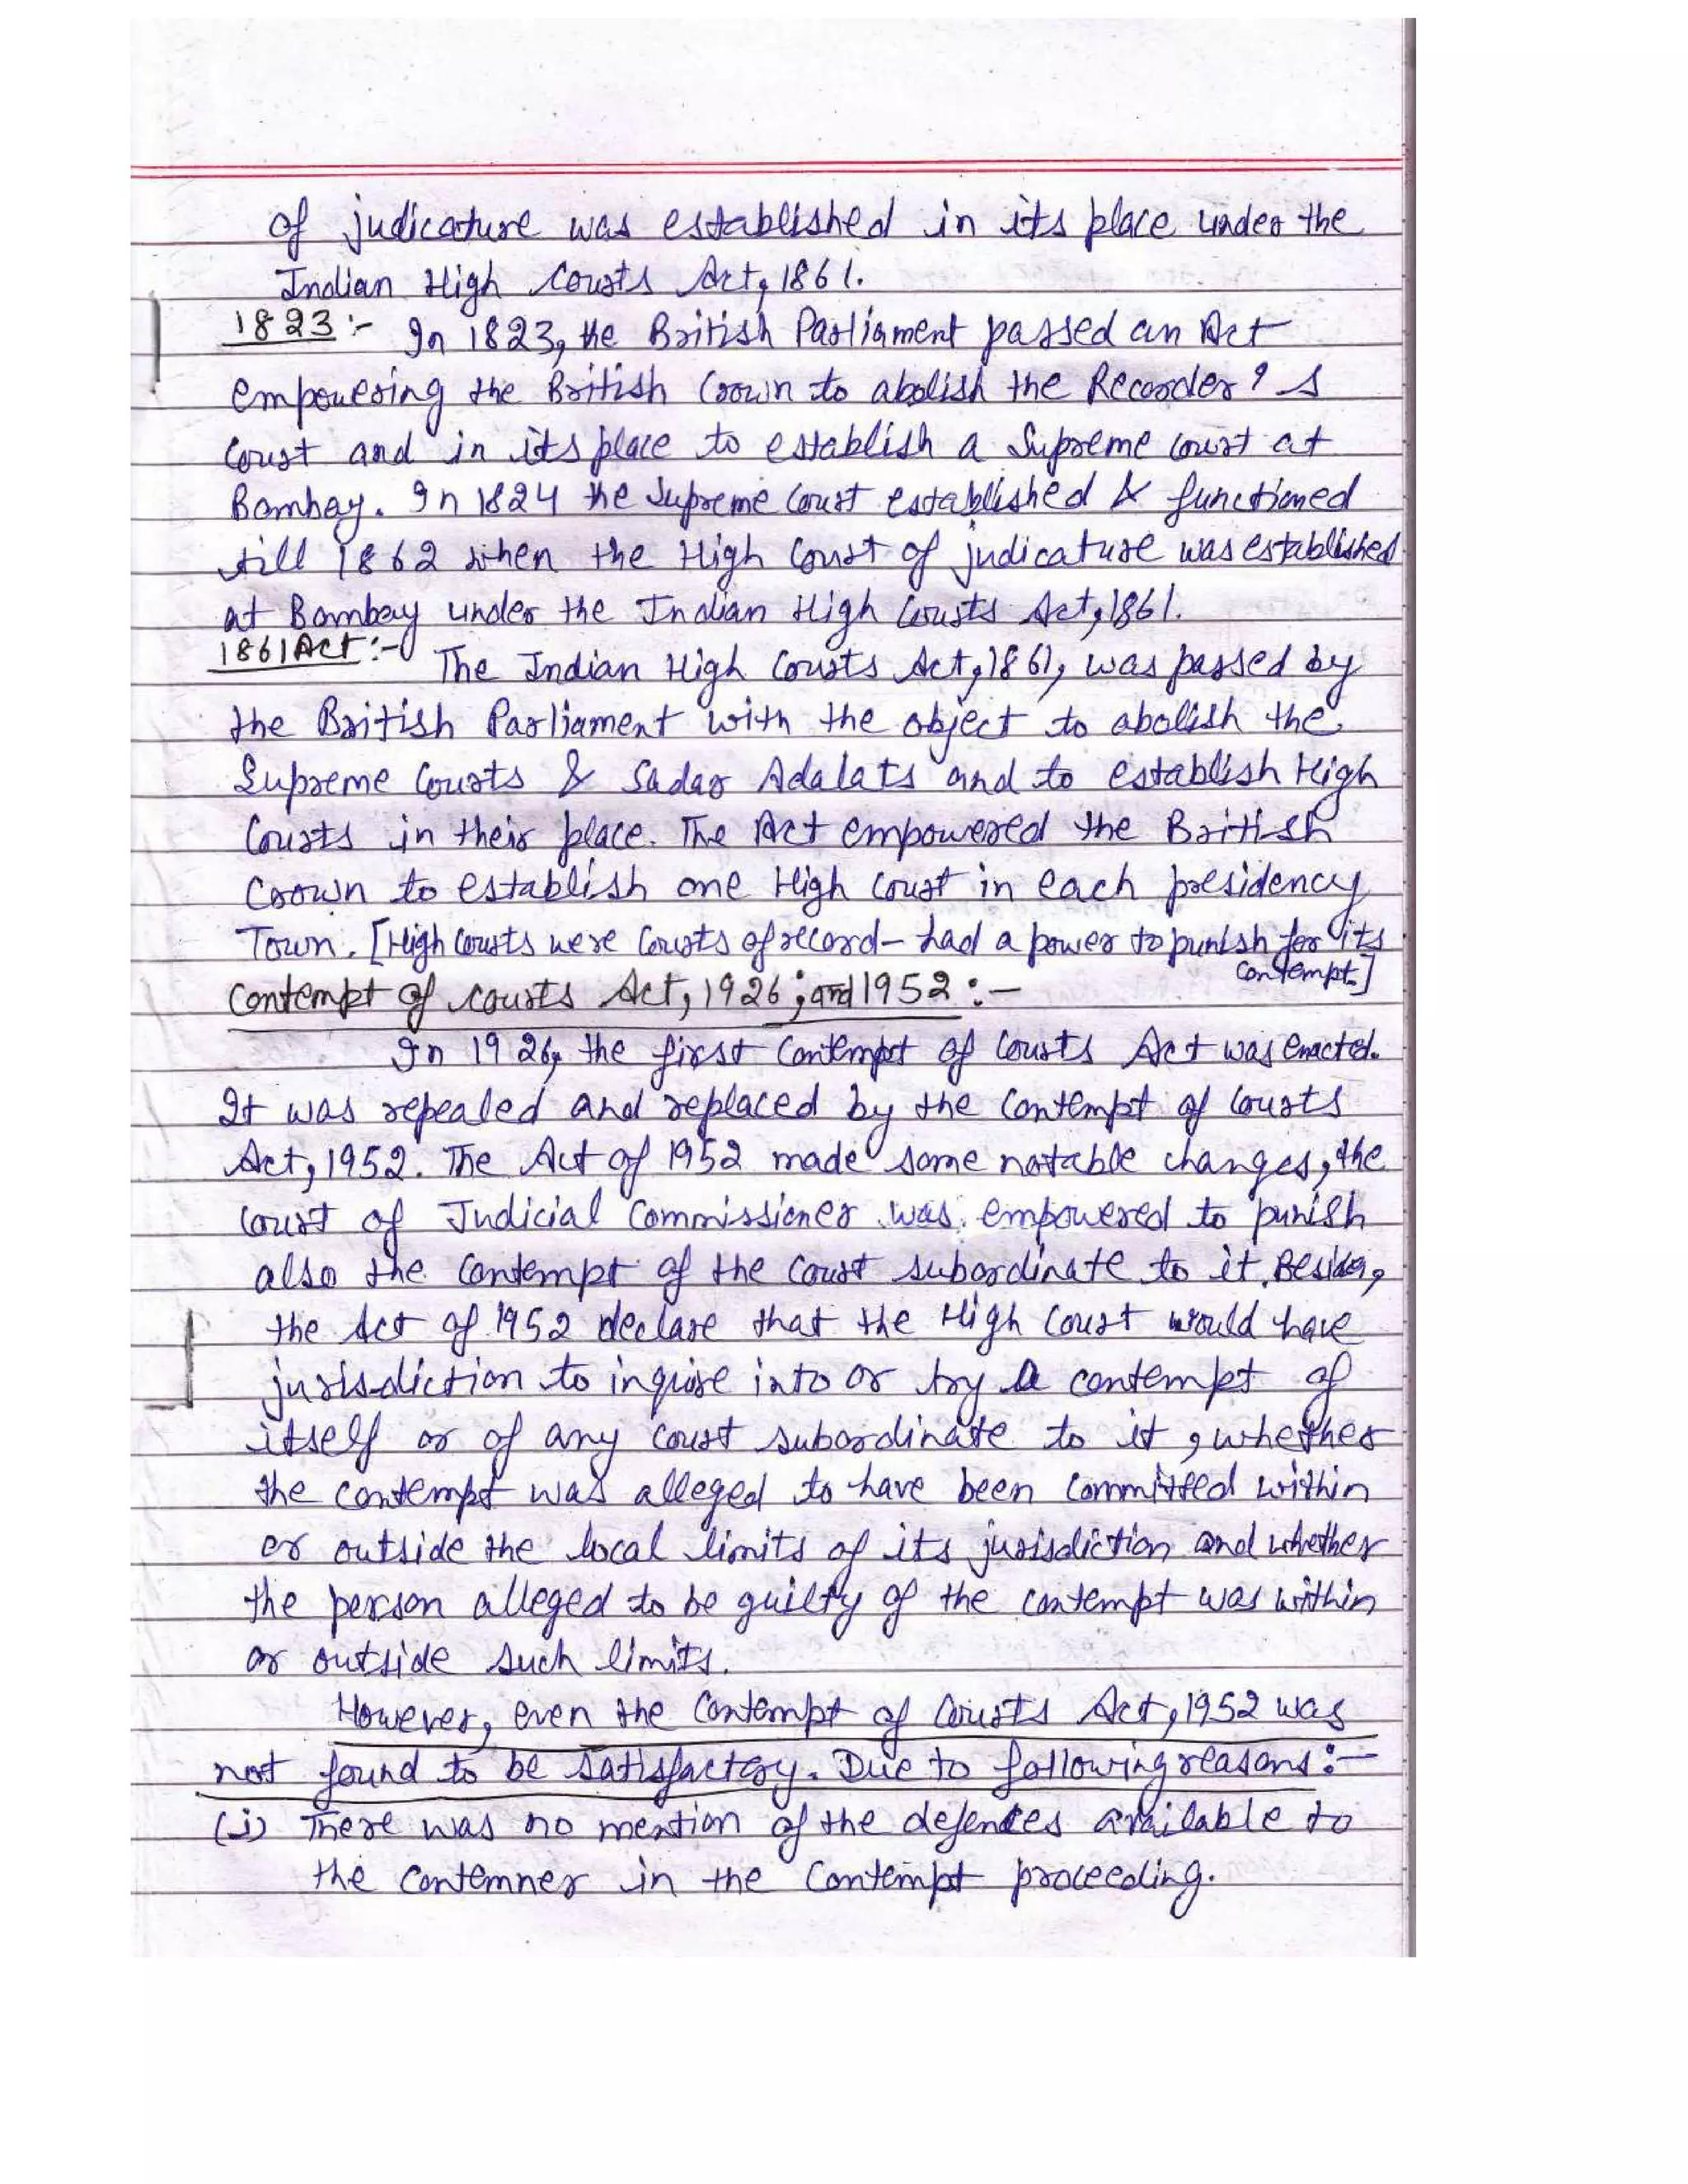 of judicature was established in its place under the
Indian High Courts Act, 1861.
1823 :- In 1823, the British Parliament passed an Act
empowering the British Crown to abolish the Recorder's
Court and in its place to establish a Supreme Court at
Bombay. In 1824 the Supreme Court established & functioned
till 1862 when the High Court of judicature was established
at Bombay under the Indian High Courts Act, 1861.
1861 Act :- The Indian High Courts Act, 1861, was passed by
the British Parliament with the object to abolish the
Supreme Courts & Sadar Adalats and to establish High
Courts in their place. The Act empowered the British
Crown to establish one High Court in each presidency
Town. [High Courts were Courts of record - had a power to punish for its
contempt.]
Contempt of Courts Act, 1926; and 1952 :-
In 1926, the first Contempt of Courts Act was enacted.
It was repealed and replaced by the Contempt of Courts
Act, 1952. The Act of 1952 made some notable changes, the
Court of Judicial Commissioner was empowered to punish
also the Contempt of the Court subordinate to it. Besides,
the Act of 1952 declare that the High Court would have
jurisdiction to inquire into or try a contempt of
itself or of any Court subordinate to it, whether
the contempt was alleged to have been committed within
or outside the local limits of its jurisdiction and whether
the person alleged to be guilty of the contempt was within
or outside such limits.
However, even the Contempt of Courts Act, 1952 was
not found to be satisfactory. Due to following reasons :-
(i) There was no mention of the defences available to
the contemner in the Contempt proceeding.